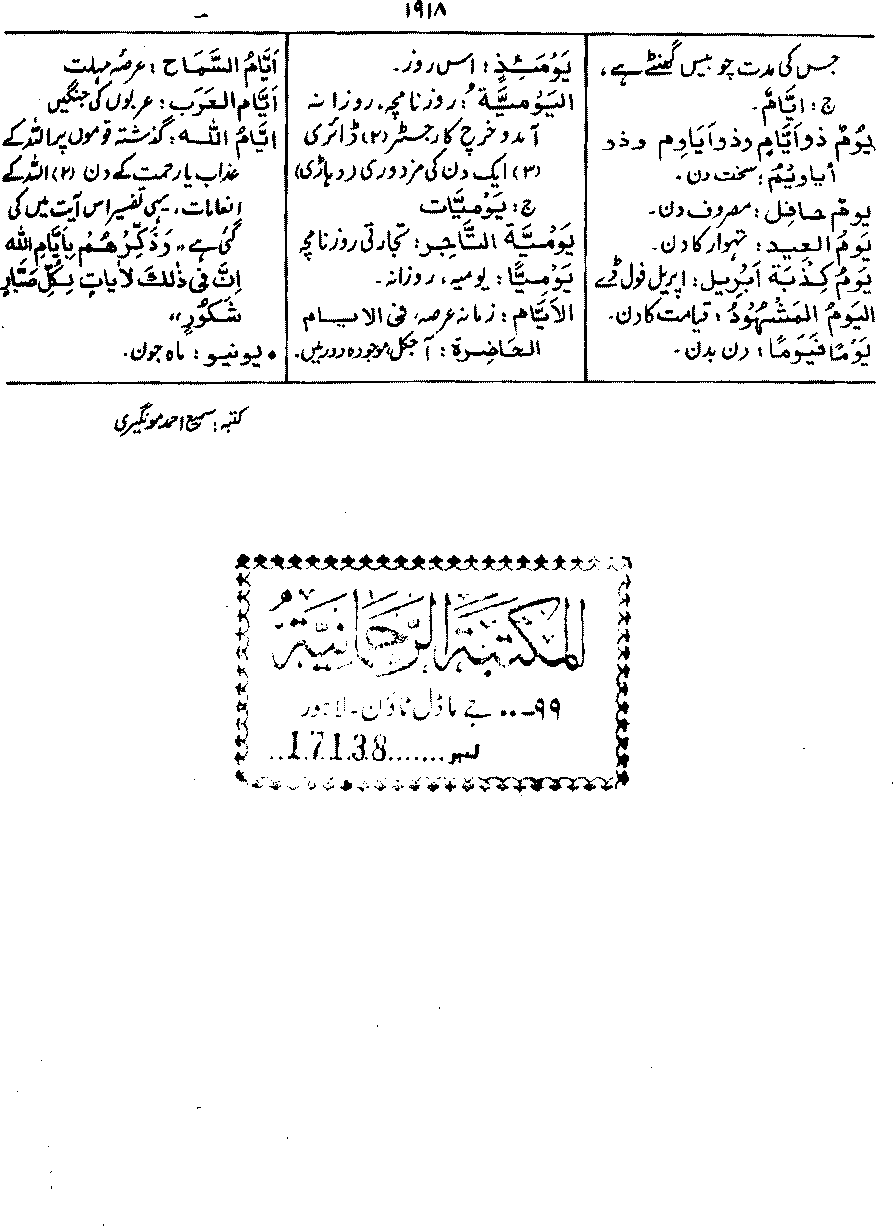 ۱۹۱۸
جس کی مدت چوبیس گھنٹے ہے،
ج: ايَّامٌ۔
يَوْمٌ ذو أيَّامٍ وذو أيَاوِم وذو
أياويْمُ: سخت دن۔
يومٌ حافِل: مصروف دن۔
يَومُ العِيد: تہوار کا دن۔
يَومُ كِذْبَة أبرِيل: اپریل فول ڈے
اليَومُ المَشْهُودُ: قیامت کا دن۔
يَوْمًا فَيَوْمًا: دن بدن۔
يَوْمَئِذٍ: اس روز۔
اليَوْمِيَّةُ: روزنامچہ، روزانہ
آمد و خرچ کا رجسٹر (۲) ڈائری
(۳) ایک دن کی مزدوری (دہاڑی)
ج: يَوْمِيَّات
يَوْمِيَّة التَّاجِر: تجارتی روزنامچہ
يَوْمِيًّا: یومیہ، روزانہ۔
الأيَّام: زمانہ عرصہ، فی الایام
الحَاضِرَة: آجکل، موجودہ دور میں۔
أيَّامُ السَّمَاح: عرصۂ مہلت
أيَّام العَرَب: عربوں کی جنگیں
ايَّامُ اللّٰه: گذشتہ قوموں پر اللہ کے
عذاب یا رحمت کے دن (۲) اللہ کے
انعامات، یہی تفسیر اس آیت میں کی
گئی ہے "وَذَكِّرْهُمْ بِأيَّامِ الله
اِنَّ فِي ذٰلِكَ لَاٰيَاتٍ لِكُلِّ صَبَّارٍ
شَكُوْرٍ"
• يونيو: ماہ جون۔
کتبہ: سمیع احمد مونگیری
المكتبة الرحمانية
۹۹-.. جے ماڈل ٹاؤن۔ لاہور
نمبر.......17138..